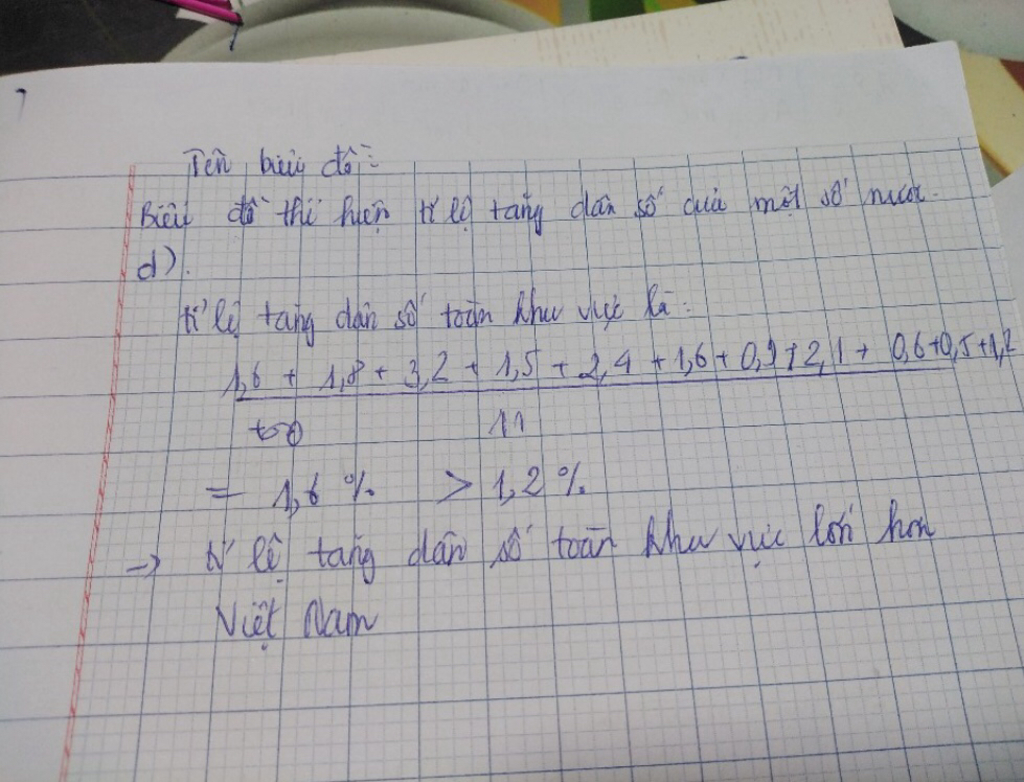 Tên biểu đồ:
Biểu đồ thể hiện tỉ lệ tăng dân số của một số nước.
d).
tỉ lệ tăng dân số toàn khu vực là:
1,6 + 1,8 + 3,2 + 1,5 + 2,4 + 1,6 + 0,9 + 2,1 + 0,6+0,5+1,2
11
= 1,6 % > 1,2 %
→ tỉ lệ tăng dân số toàn khu vực lớn hơn
Việt Nam